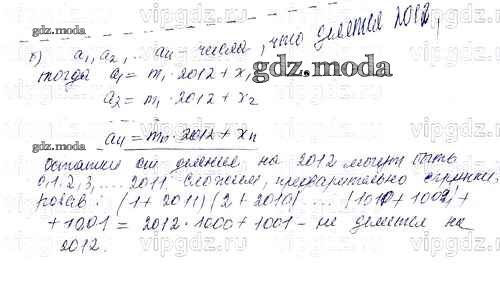 б) a₁, a₂, ... aₙ - числа, что делятся 2012,
gdz.moda
тогда a₁ = m₁ · 2012 + x₁
a₂ = m₁ · 2012 + x₂
gdz.moda
aₙ = mₙ · 2012 + xₙ
Остатки от деления на 2012 могут быть
0, 1, 2, 3, .... 2011. Сложим, предварительно сгруппи-
ровав: (1 + 2011)(2 + 2010) ... (1010 + 1002) +
+ 1001 = 2012 · 1000 + 1001 - не делится на
2012.
vipgdz.ru